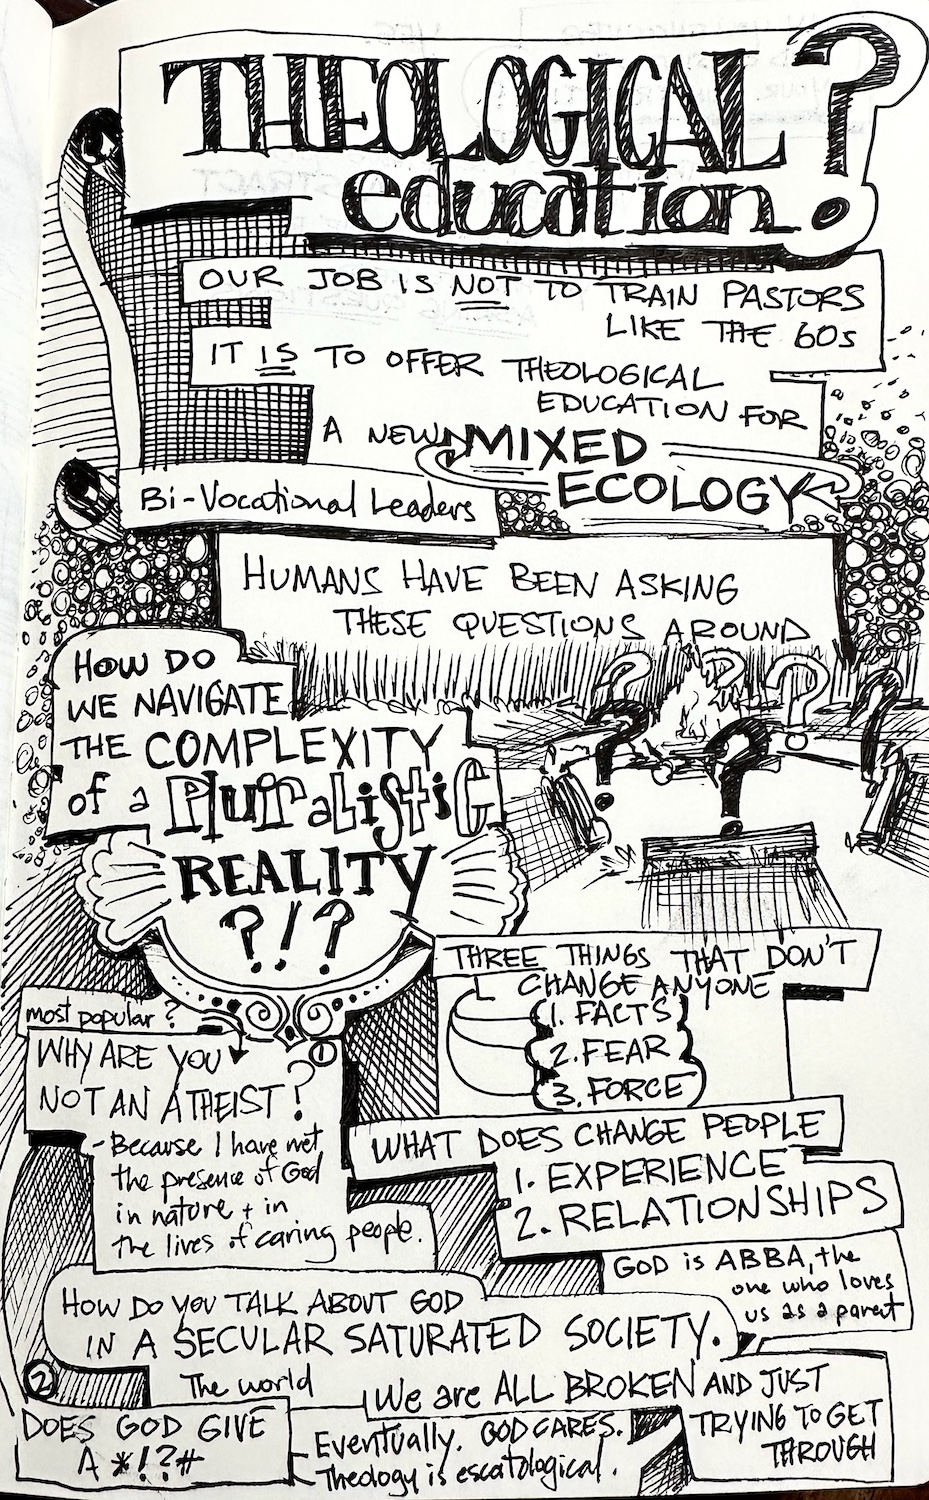 THEOLOGICAL
education?
OUR JOB IS NOT TO TRAIN PASTORS
LIKE THE 60s
IT IS TO OFFER THEOLOGICAL
EDUCATION FOR
A NEW MIXED
ECOLOGY
Bi-Vocational Leaders
HUMANS HAVE BEEN ASKING
THESE QUESTIONS AROUND
HOW DO
WE NAVIGATE
THE COMPLEXITY
of a Pluralistic
REALITY
?!?
THREE THINGS THAT DON'T
CHANGE ANYONE
1. FACTS
2. FEAR
3. FORCE
most popular?
WHY ARE YOU 1
NOT AN ATHEIST?
- Because I have met
the presence of God
in nature + in
the lives of caring people.
WHAT DOES CHANGE PEOPLE
1. EXPERIENCE
2. RELATIONSHIPS
GOD is ABBA, the
one who loves
us as a parent
HOW DO YOU TALK ABOUT GOD
IN A SECULAR SATURATED SOCIETY.
2
The world
DOES GOD GIVE
A *!?#
We are ALL BROKEN AND JUST
TRYING TO GET
THROUGH
Eventually. GOD CARES.
Theology is escatological.